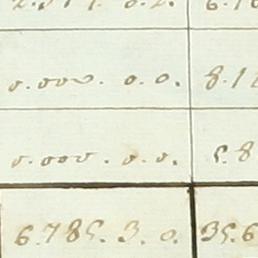 0.000. 0.0. 8.1
0.000. 0.0. 5.8
6.785. 3. 0. 35.6